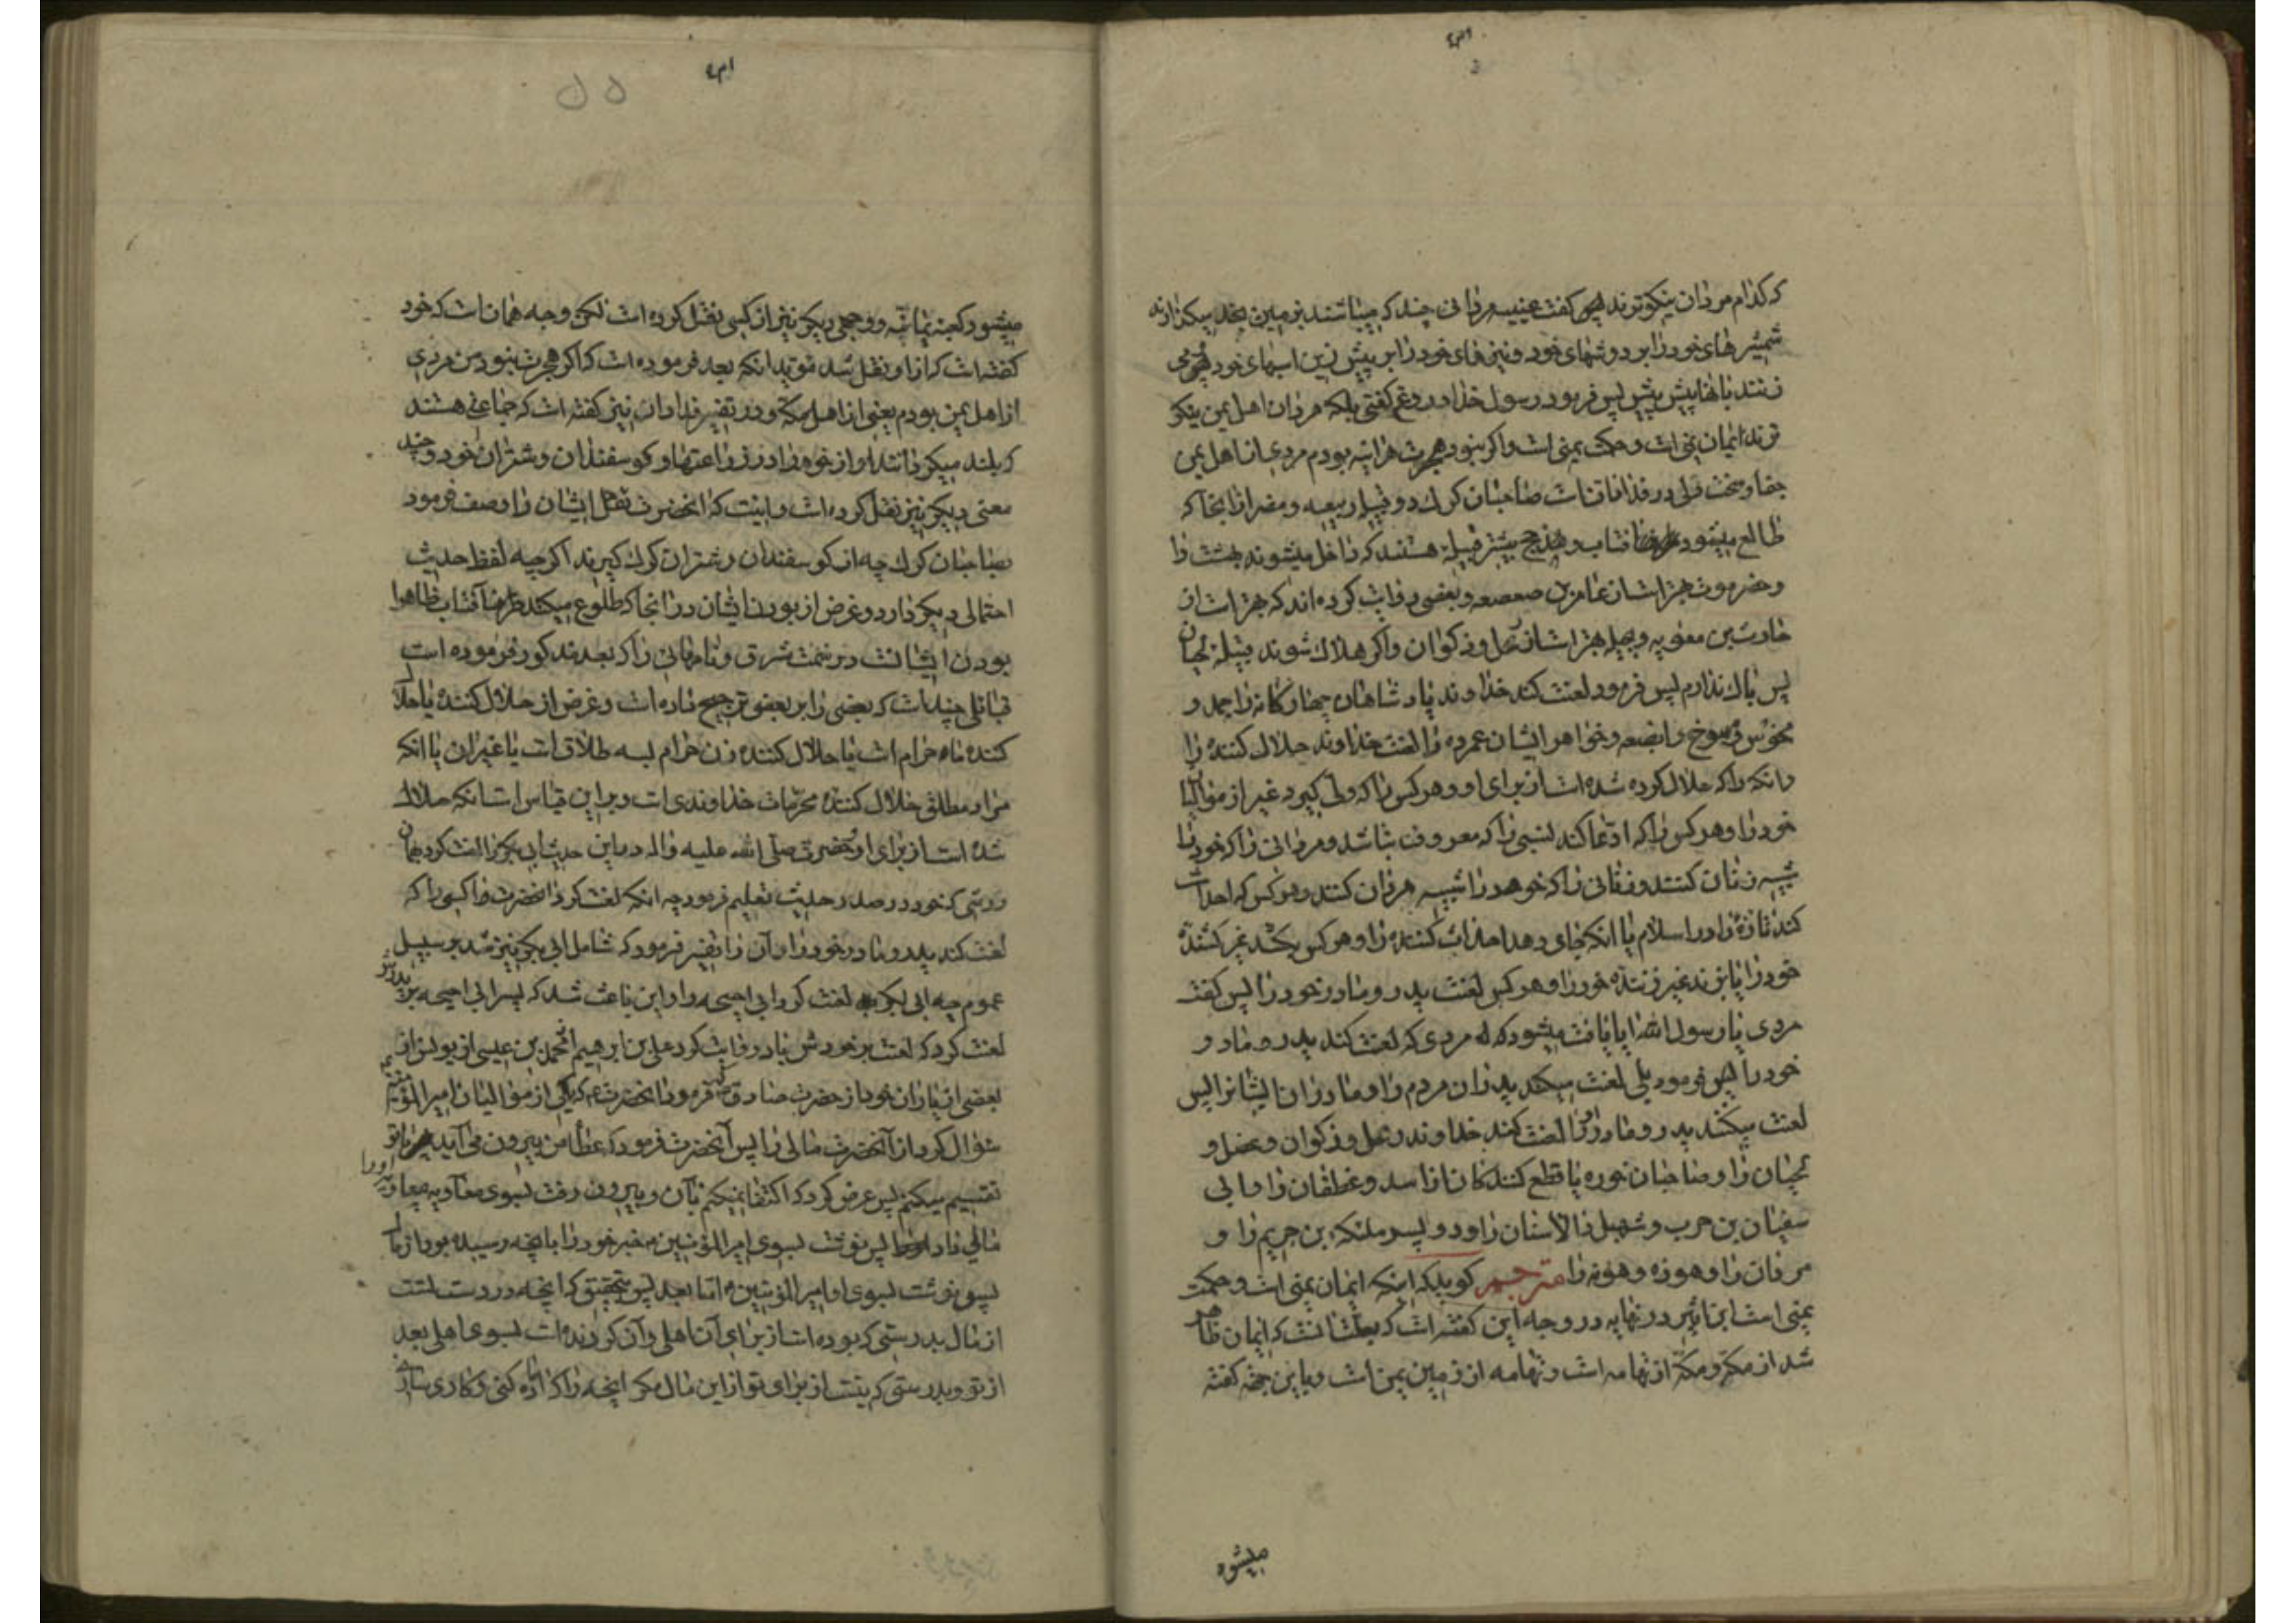 که کدام مردان نیکوترند پس گفت عیینه مردانی چند که میباشند بزمین نجد میکذارند
شمشیرهای خود را بر دوشهای خود و نیزهای خود را بر پیش زین اسبهای خود پس می
زنند بانها پیش پیش پس فرمود رسول خدا دروغ کفتی بلکه مردان اهل یمن نیکو
ترند ایمان یمنی است و حکمت یمنی است واکر نبود هجرت هراینه بودم مردی از اهل یمن
جفا و سخت دلی در فدادانست صاحبان کرک دو قبیله ربیعه و مضر ازانجا که
طالع میشود افتاب و مذحج بیشتر قبیله هستند که داخل میشوند بهشت را
و حضرموت بهتر است از عامر بن صعصعه و بعضی روایت کرده اند که بهتر است از
حارث بن معویه و بجیله بهتر است از رعل و ذکوان واکر هلاک شوند قبیله لحیان
پس باک ندارم پس فرمود لعنت کند خداوند پادشاهان چهارکانه را جمد و
مخوس و مشرح و ابضعه و خواهر ایشان عمرده را لعنت خداوند حلال کننده را
و انکه را که حلال کرده شده است از برای او و هر کس را که ولی کیرد غیر از موالی
خود را و هر کس را که ادعا کند نسبی را که معروف نباشد و مردانی را که خود را
شبیه زنان کنند و زنانی را که خود را شبیه مردان کنند و هر کس که احداث
کند تازهٔ را در اسلام یا انکه جای دهد احداث کننده را و هر کس بکشد غیر کشندهٔ
خود را یا بزند غیر زنندهٔ خود را و هر کس لعنت پدر و مادر خود را پس کفت
مردی یا رسول الله ایا یافت میشود که مردی که لعنت کند پدر و مادر
خود را پس فرمود بلی لعنت میکند پدران مردم را و مادران ایشانرا پس
لعنت میکنند پدر و مادر او را لعنت کند خداوند رعل و ذکوان و عضل و
لحیان را و صاحبان خوره یا قطع کنندکان از اسد و غطفان را و ابی
سفیان بن حرب و شهبل ذا الاسنان را و دو پسر ملیکه بن جریم را و
مروان را و هوذه و هونه را مترجم کوید که اینکه ایمان یمنی است و حکمت
یمنی است ابن اثیر در نهایه در وجه این کفته است که بعلت انست که ایمان ظاهر
شد از مکه و مکه از تهامه است و تهامه از زمین یمن است و باین جهة کفته
میشود
میشود کعبه یمانیه و وجهی دیکر نیز از کسی نقل کرده است لکن وجه همان است که خود
کفته است که از او نقل شد مؤید انکه بعد فرموده است که اکر هجرت نبود من مردی
از اهل یمن بودم یعنی از اهل مکه و در تفسیر فدادان نیز کفته است که جماعتی هستند
که بلند میکردانند اواز خود را در زراعتها و کوسفندان و شتران خود و چند
معنی دیکر نیز نقل کرده است و اینست که انحضرت نقل ایشان را وصف فرمود
صاحبان کرک چه از کوسفندان و شتران کرک کیرند اکر چه لفظ حدیث
احتمالی دیکر دارد و غرض از بودن ایشان در انجا که طلوع میکند آفتاب ظاهرا
بودن ایشانست در سمت شرق و نامهائی را که بعد مذکور فرموده است
قبائلی چند است که بعضی را بر بعضی ترجیح داده است و غرض از حلال کننده یا حلال
کننده ماه حرام است یا حلال کننده زن حرام بسه طلاق است یا غیر ان یا انکه
مراد مطلق حلال کننده محرمات خداوندی است و بر این قیاس است انکه حلال
شده است از برای او و حضرت صلی الله علیه واله در این حدیث ابی بکر را لعنت کرد بهمان
روشی که خود در صدر حدیث تعلیم فرمود چه انکه لعنت کرد انحضرت کسی را که
لعنت کند پدر و مادر خود را و آن را تفسیر فرمود که شامل ابی بکر نیز شد بر سبیل
عموم چه ابی بکر لعنت کرد ابی احیحه را و این باعث شد که پسر ابی احیحه بر پدرش
لعنت کرد که لعنت بر خودش باد روایت کرد علی بن ابرهیم از محمد بن عیسی از یونس از
بعضی از یاران خود از حضرت صادق فرمود انحضرت که یکی از موالیان امیر المؤمنین
سؤال کرد از آنحضرت مالی را پس آنحضرت فرمود که عطا من بیرون می آید با تو
تقسیم میکنم پس عرض کرد که اکتفا نمیکنم بآن و بیرون رفت بسوی معاویه پس معاویه او را
مالی داد پس نوشت بسوی امیر المؤمنین مخبر خود را بانچه رسیده بود از مال
پس نوشت بسوی او امیر المؤمنین امّا بعد پس بتحقیق که انچه در دست تست
از مال بدرستی که بوده است از برای آن اهلی و آن کردنده است بسوی اهلی بعد
از تو و بدرستی که نیست از برای تو از این مال مکر انچه را که اماده کنی و کاری سازی